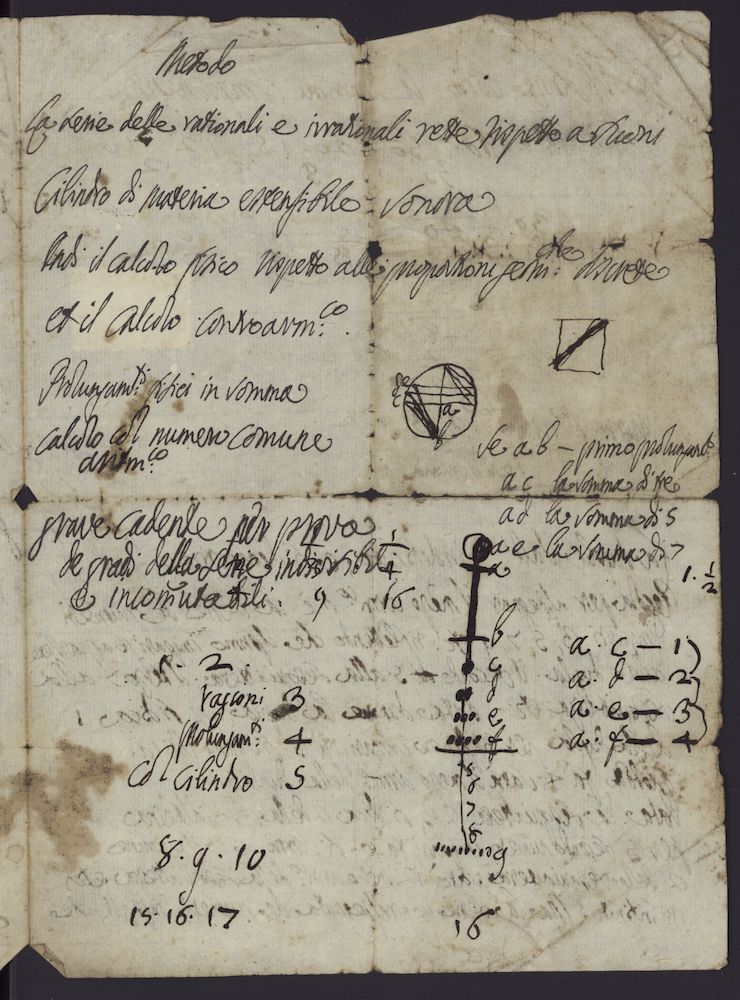 Metodo
La serie delle rationali e irrationali rette rispetto a suoni
Cilindro di materia estensibile sonora
Indi il calcolo fisico rispetto alle proportioni geom:che discrete
et il calcolo controarm:co.
Prolungam:ti fisici in somma
calcolo col numero comune
aritm:co
de
c
a
b
se a b – primo prolungam:to
a c la somma di tre
a d la somma di 5
a e la somma di 7
grave cadente per prova 1
de gradi della serie indivisibili 4
e incomutabili. 9 16
1. 1/2
a
b
c
d
e
f
5
6
7
8
g
16
a. c – 1)
a. d – 2)
a. e – 3)
a. f – 4)
1. 2
ragioni 3
prolungam:ti 4
col cilindro 5
8. 9. 10
15. 16. 17